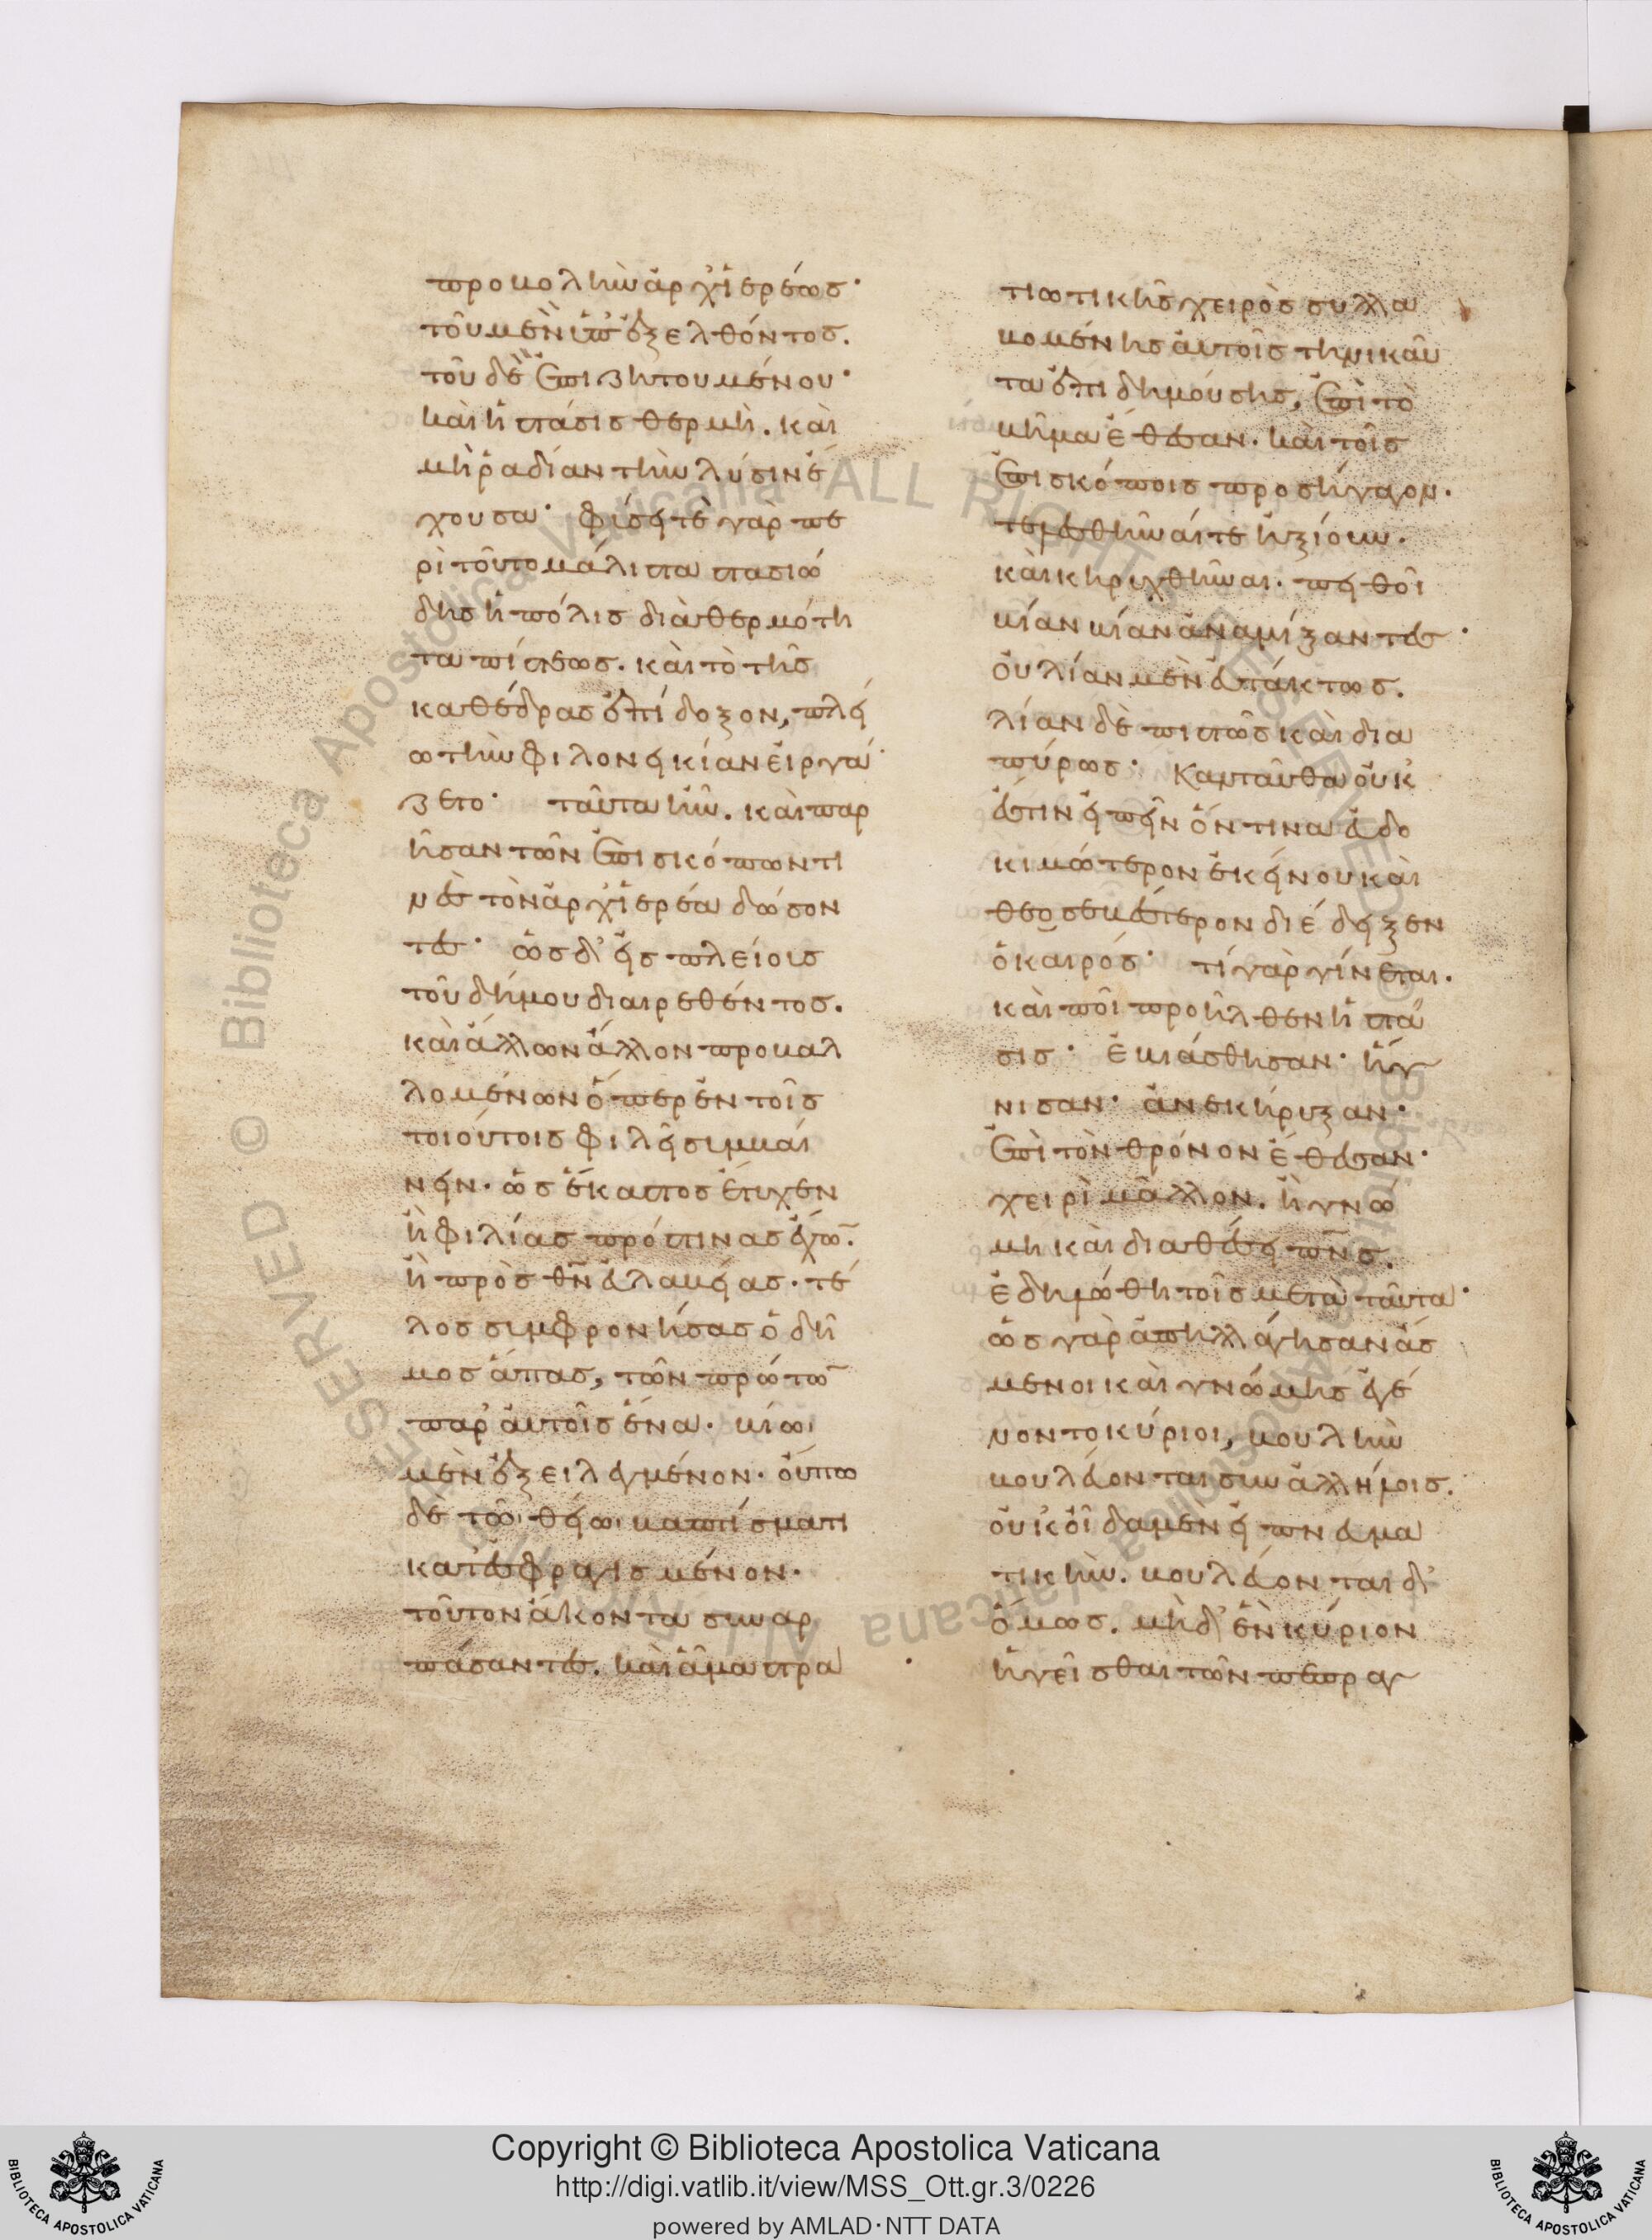 προβολὴν ἀρχϊερέως·
τοῦ μὲν ὑπεξελθόντος.
τοῦ δὲ ἐπιζητουμένου·
καὶ ἡ στάσις θερμὴ. καὶ
μὴ ῥαδίαν τὴν λύσιν ἔ
χουσα· φύσει τὲ γὰρ πε
ρὶ τοῦτο μάλιστα στασιώ
δης ἡ πόλις διὰ θερμότη
τα πίστεως. καὶ τὸ τῆς
καθέδρας ἐπίδοξον, πλεί
ω τὴν φιλονεικίαν εἰργά
ζετο· ταῦτα ἦν. καὶ παρ
ῆσαν τῶν ἐπισκόπων τι
νὲς τὸν ἀρχϊερέα δώσον
τες· ὡς δ' εἰς πλείους
τοῦ δήμου διαιρεθέντος.
καὶ ἄλλων ἄλλον προβαλ
λομένων ὅπερ ἐν τοῖς
τοιούτοις φιλεῖ συμβαί
νειν. ὡς ἕκαστος ἔτυχεν
ἢ φιλίας πρός τινας ἔχω̄.
ἢ πρὸς θν̄ εὐλαβείας. τέ
λος συμφρονήσας ὁ δῆ
μος ἅπας, τῶν πρώτω̄
παρ' αὐτοῖς ἕνα. βίωι
μὲν ἐξειλεγμένον. οὔπω
δὲ τῶι θείωι βαπτίσματι
κατεσφραγισμένον.
τοῦτον ἄκοντα συναρ
πάσαντες. καὶ ἅμα στρα
τιωτικῆς χειρὸς συλλα
βομένης αὐτοῖς τηνικαῦ
τα ἐπιδημούσης, ἐπὶ τὸ
βῆμα ἔθεσαν. καὶ τοῖς
ἐπισκόποις προσήγαγον.
τελεσθῆναί τε ἠξίουν.
καὶ κηρυχθῆναι. πειθοῖ
βίαν βίαν ἀναμίξαντες·
οὐ λίαν μὲν εὐτάκτως.
λίαν δὲ πιστῶς καὶ δια
πύρως· Κἀνταῦθα οὐκ
ἔστιν εἰπεῖν ὅντινα εὐδο
κιμώτερον ἐκείνου καὶ
θεοσεβέστερον διέδειξεν
ὁ καιρός· τί γὰρ γίνεται.
καὶ ποῖ προῆλθεν ἡ στά
σις· ἐβιάσθησαν· ἥγ
νισαν· ἀνεκήρυξαν·
ἐπὶ τὸν θρόνον ἔθεσαν·
χειρὶ μᾶλλον. ἢ γνώ
μη καὶ διαθέσει πν̄ς.
ἐδηλώθη τοῖς μετὰ ταῦτα·
ὡς γὰρ ἀπηλλάγησαν ἄσ
μενοι καὶ γνώμης ἐγέ
νοντο κύριοι, βουλὴν
βουλεύονται συν ἀλλήλοις.
οὐκ οἶδα μὲν εἰ πνευμα
τικήν. βουλεύονται δ'
ὅμως. μηδ' ἓν κύριον
ἡγεῖσθαι τῶν πεπραγ